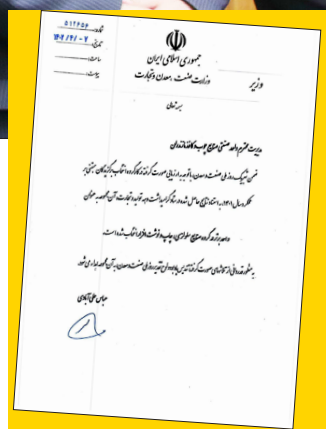 شماره: ۵۱۲۶۵۶
تاریخ: ۱۴۰۲/۰۴/۰۷
ساعت:
پیوست:
جمهوری اسلامی ایران
وزارت صنعت، معدن و تجارت
وزیر
بسمه تعالی
مدیریت محترم واحد صنعتی صنایع چوب و کاغذ مازندران
ضمن تبریک روز ملی صنعت و معدن، با توجه به ارزیابی صورت گرفته در کارگروه انتخاب برگزیدگان مبتنی بر
عملکرد سال ۱۴۰۱، به استناد نتایج حاصل شده در ستاد گرامیداشت و جهه تولید و تجارت، آن مجموعه به عنوان
واحد برتر در گروه صنایع سلولزی، چاپ و نوشت افزار انتخاب شده است.
به منظور قدردانی از تلاشهای صورت گرفته، تندیس یادبود ملی تقدیر روز ملی صنعت و معدن به آن مجموعه اهدا می شود
عباس علی آبادی